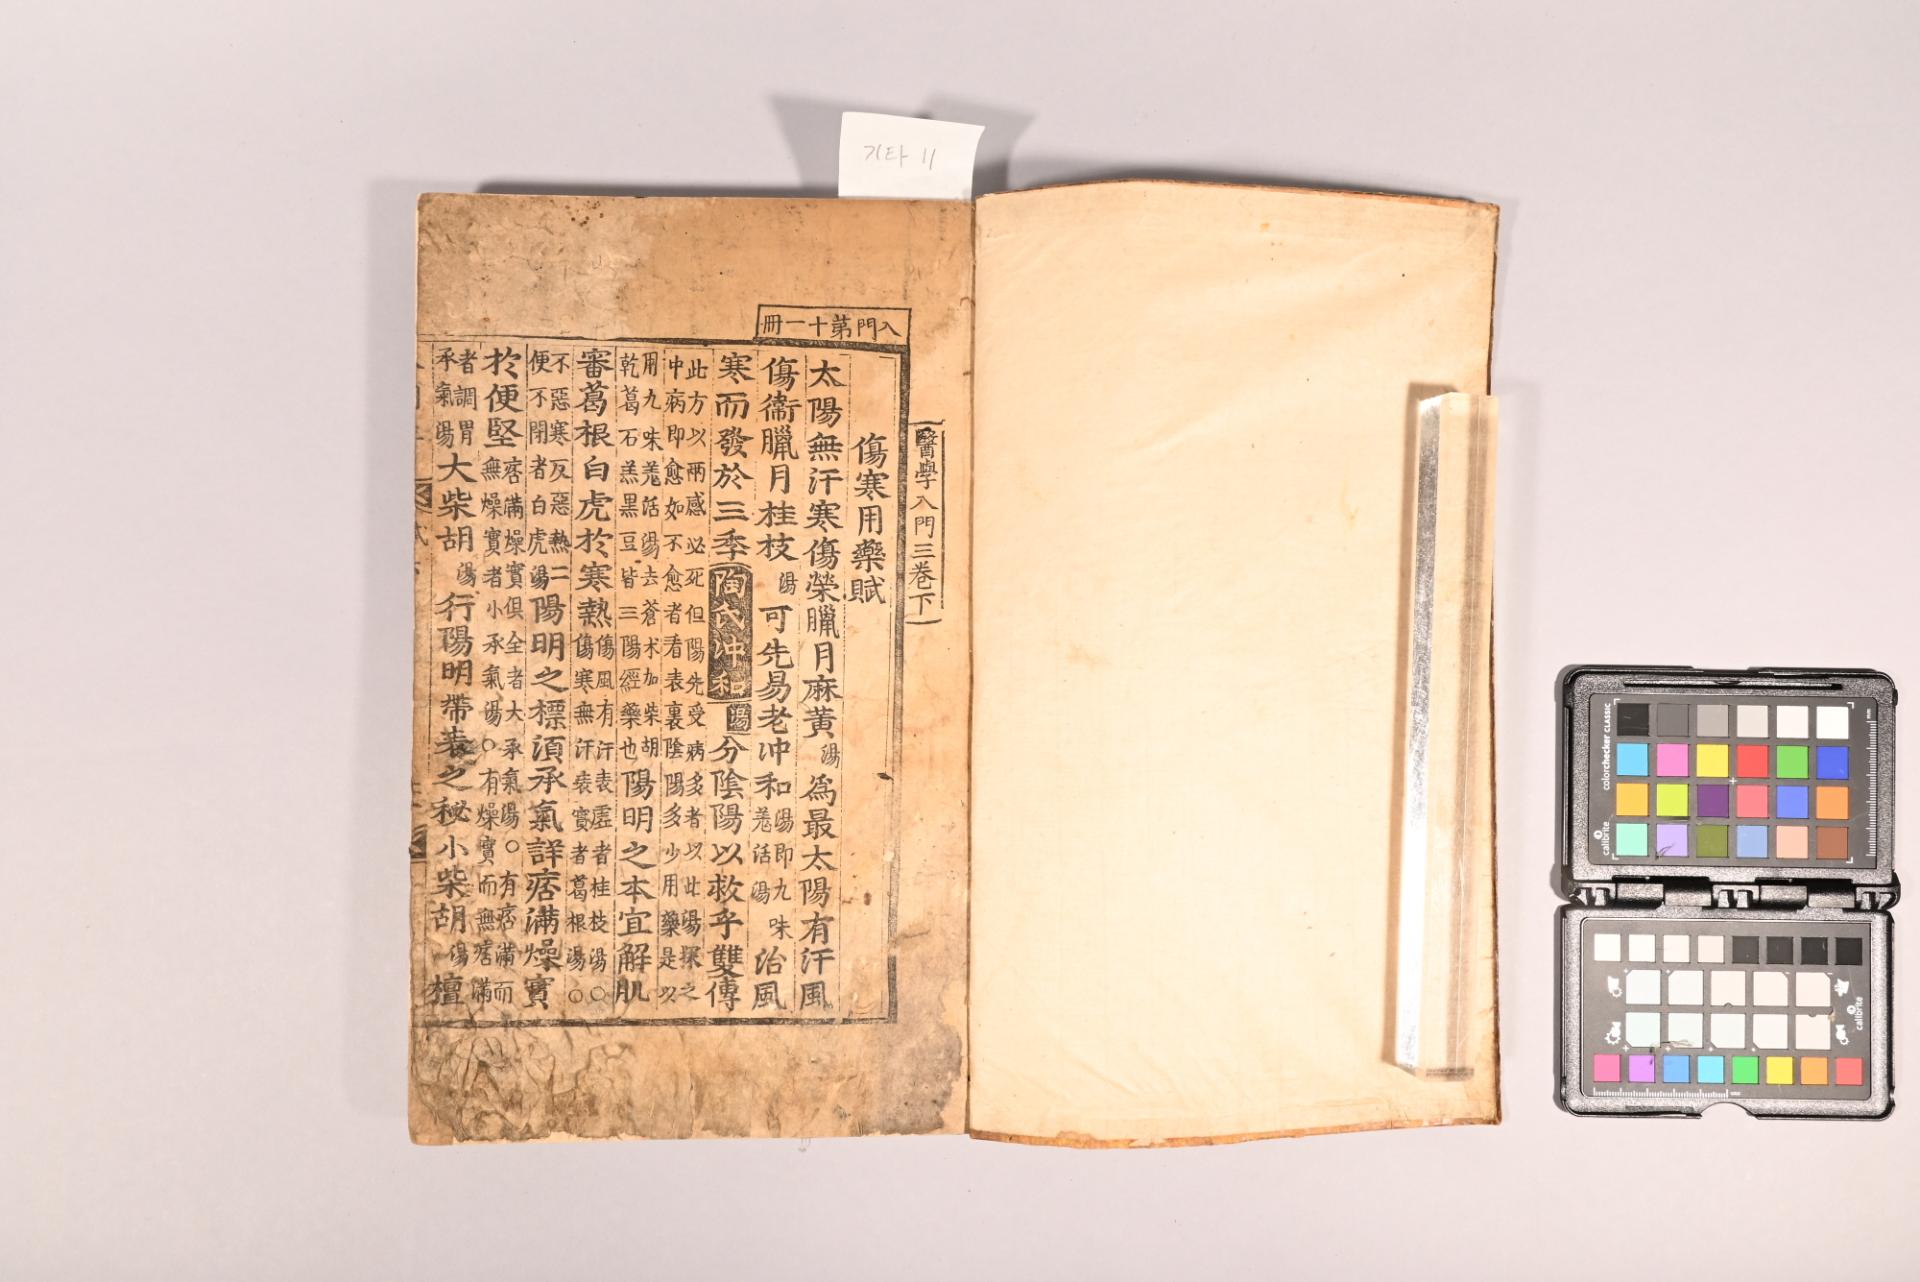 기타 11
入門第十一冊
醫學入門三卷下
傷寒用藥賦
太陽無汗寒傷榮臘月麻黃湯爲最太陽有汗風
傷衞臘月桂枝湯可先易老冲和湯即九味羗活湯治風
寒而發於三季陶氏冲和湯分陰陽以救乎雙傳
此方以兩感必死但陽先受病多者以此湯探之
中病即愈如不愈者看表裏陰陽多少用藥是以
用九味羗活湯去蒼朮加柴胡
乾葛石羔黑豆皆三陽經藥也陽明之本宜解肌
審葛根白虎於寒熱傷風有汗表虛者桂枝湯○
傷寒無汗表實者葛根湯○
不惡寒反惡熱二
便不閉者白虎湯陽明之標湏承氣詳痞滿燥實
於便堅痞滿燥實俱全者大承氣湯○有痞滿而
無燥實者小承氣湯○有燥實而無痞滿
者調胃
承氣湯大柴胡湯行陽明帶表之秘小柴胡湯擅
colorchecker CLASSIC
calibrite
calibrite